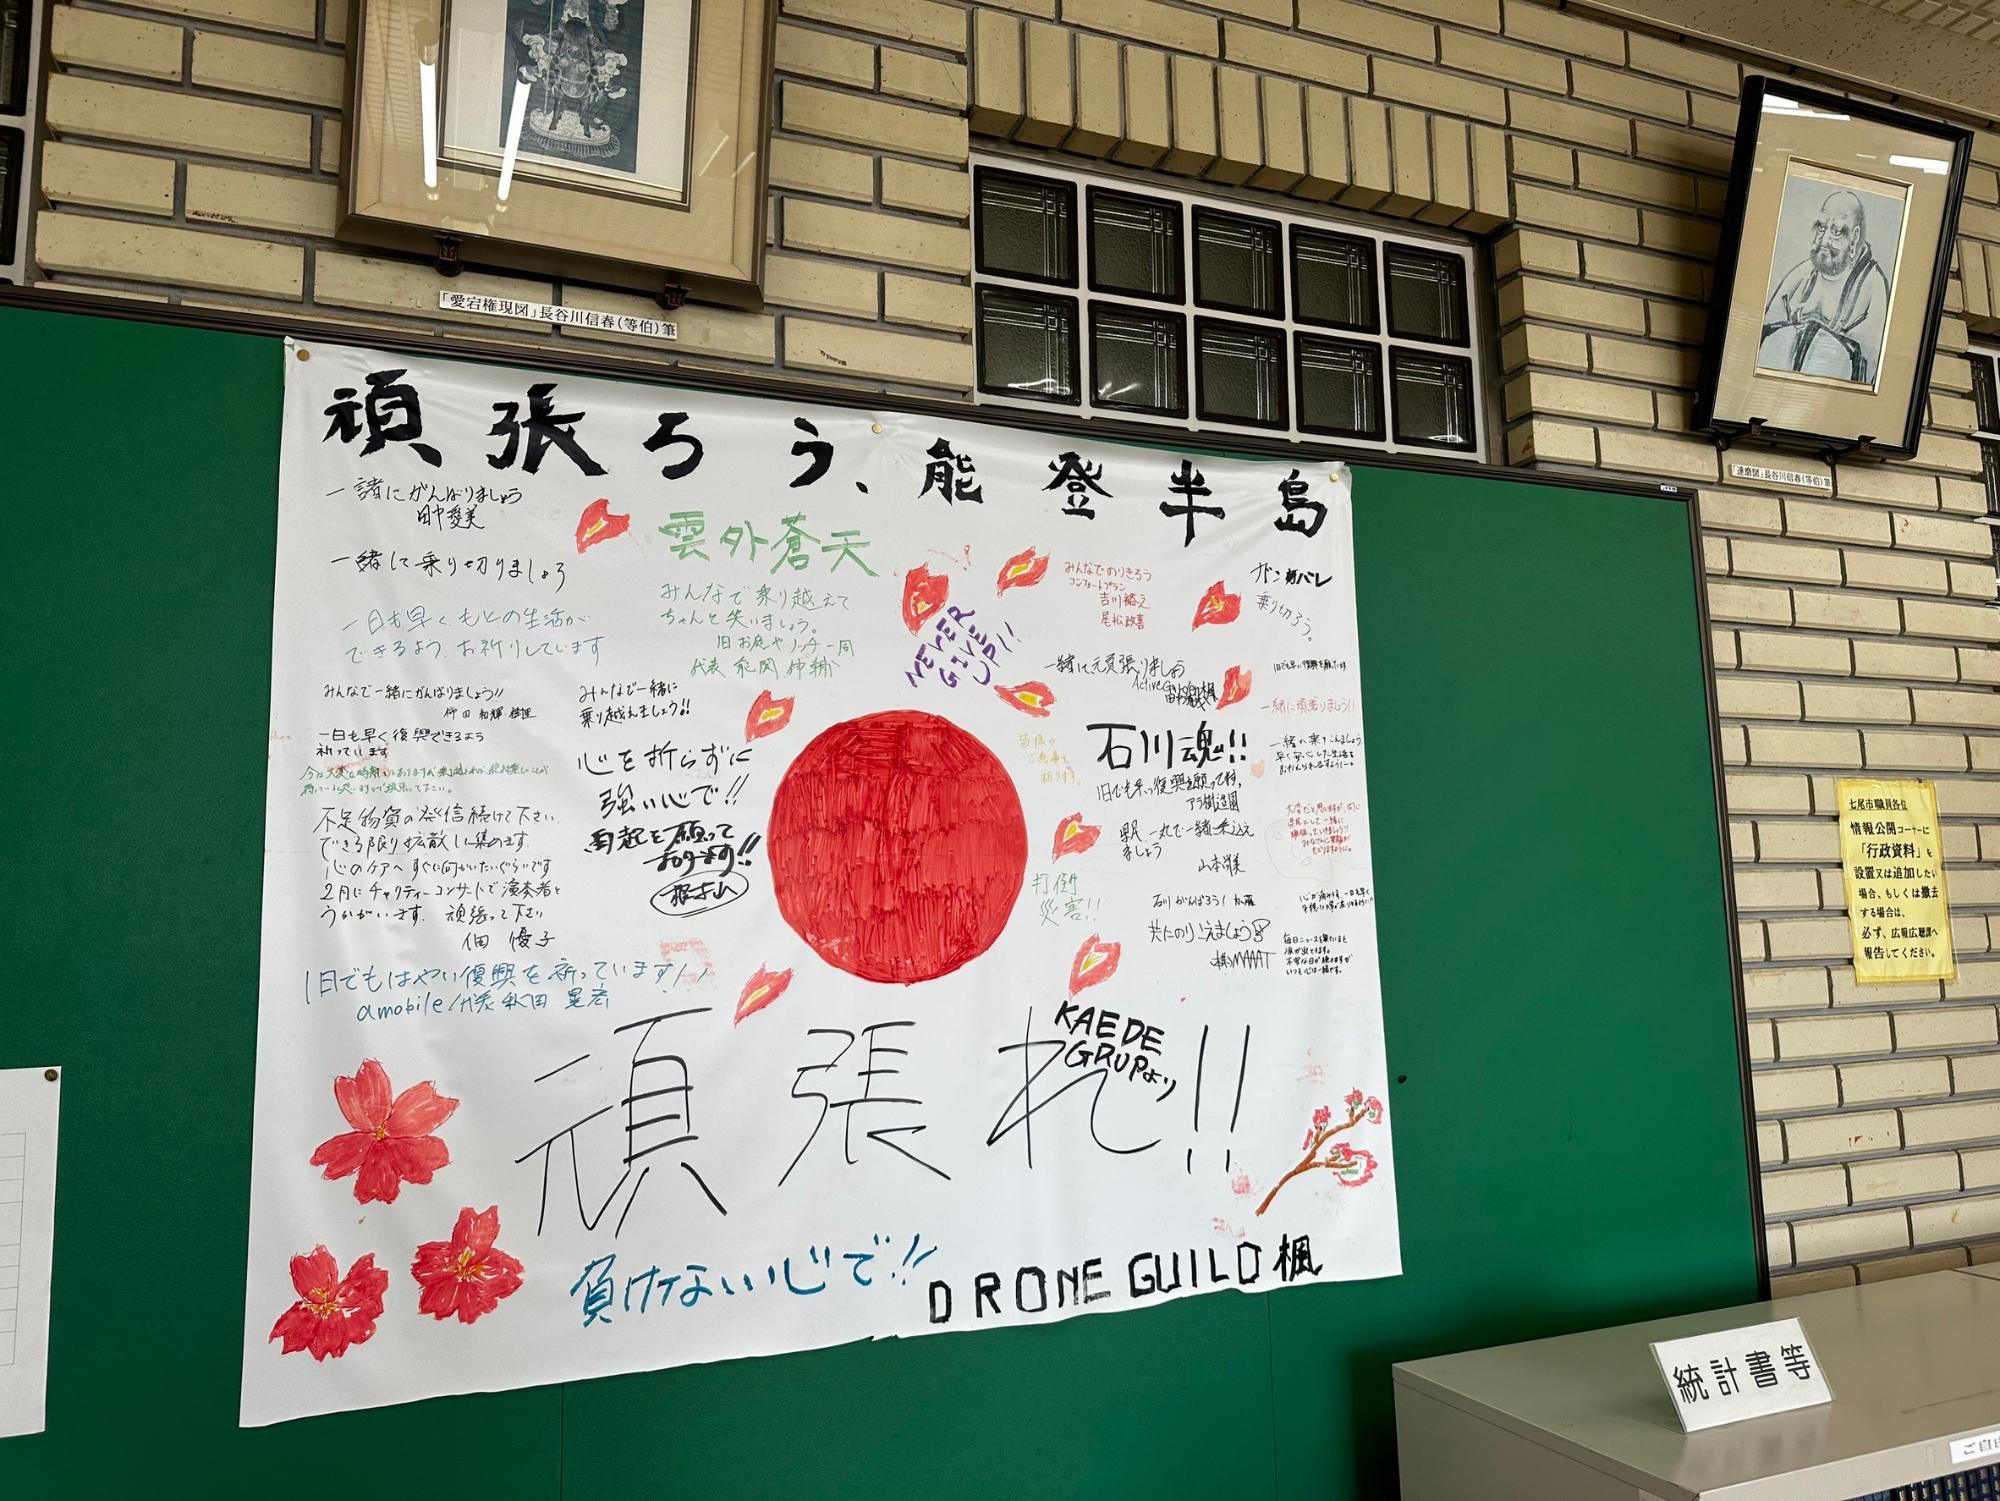 「愛宕権現図」長谷川信春(等伯)筆
「達磨図」長谷川信春(等伯)筆
頑張ろう、能登半島
一諸にがんばりましょう
田中愛美
一緒に乗り切りましょう
一日も早くもとの生活が
できるよう、お祈りしています
雲外蒼天
みんなで乗り越えて
ちゃんと笑いましょう。
旧お庭やノッチ一同
代表
NEVER
GIVE
UP!!
みんなでのりきろう
コンフォートプラン
吉川裕え
尾松政喜
ガンバレ
乗り切ろう。
一緒に元頑張りましょう
一緒に頑張りましょう!!
みんなで一緒にがんばりましょう!!
一日も早く復興できるよう
祈っています
みんなで一緒に
乗り越えましょう!!
心を折らずに
強い心で!!
再起を願って
おります!!
不足物資の発信続けて下さい
できる限り拡散し集めます
心のケアへすぐに向かいたいぐらいです
2月にチャリティーコンサートで演奏者と
うかがいます。頑張って下さい
佃 優子
1日でもはやい復興を祈っています!!
amobile代表 秋田 晃宏
皆様の
ご無事を
祈ります。
石川魂!!
1日でも早い復興を願ってます。
県民一丸で一緒に乗込え
ましょう
山本尚美
打倒
災害!!
石川がんばろう!
共にのりこえましょう
(株)MAAAT
毎日ニュースを観ていると
涙が出てきます。
不安な日が続きますが
いつも心は一緒です。
頑張れ!!
KAEDE
GRUPより
負けないい心で!!
DRONE GUILD 楓
七尾市職員各位
情報公開コーナーに
「行政資料」を
設置又は追加したい
場合、もしくは撤去
する場合は、
必ず、広報広聴課へ
報告してください。
統計書等
ご自由